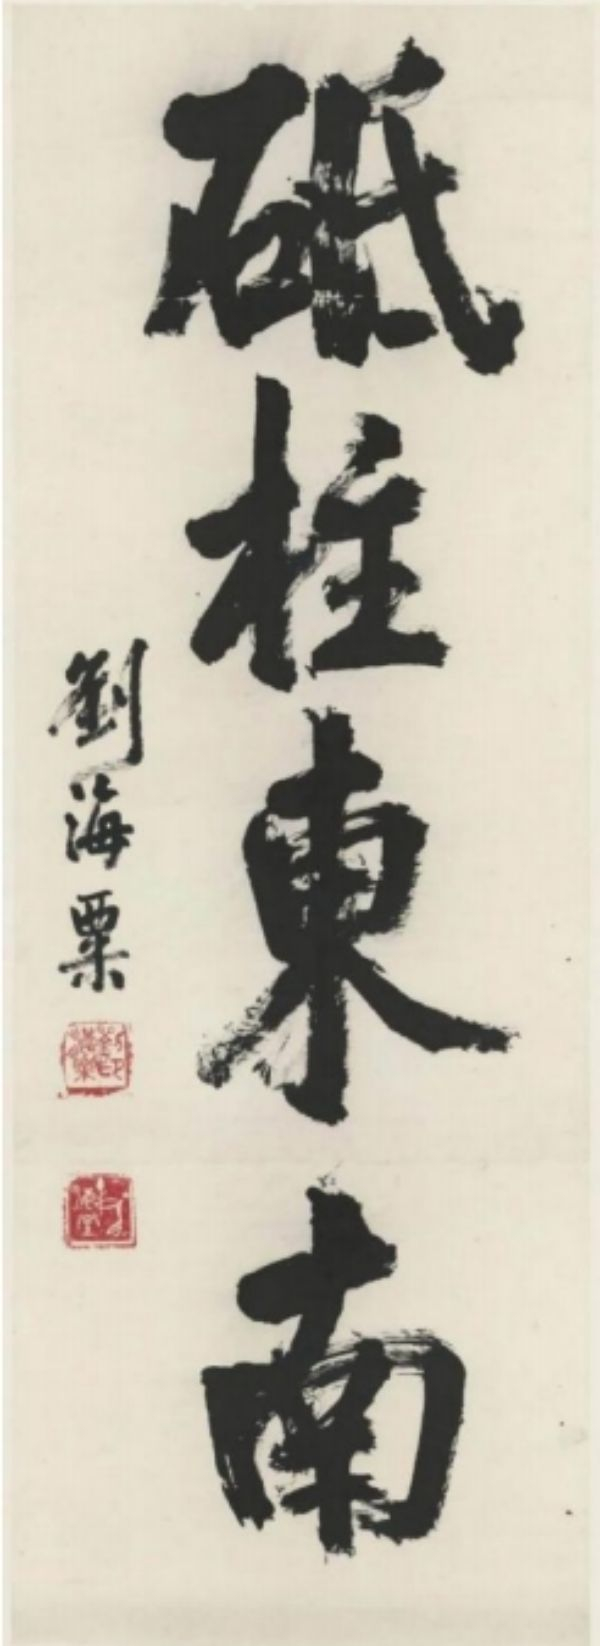 砥柱東南
劉海粟